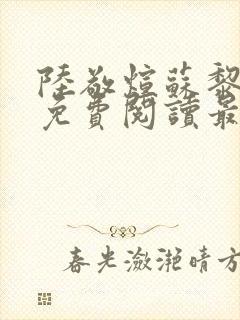 陸敬煊蘇黎
免費閱讀最
春光瀲滟晴方